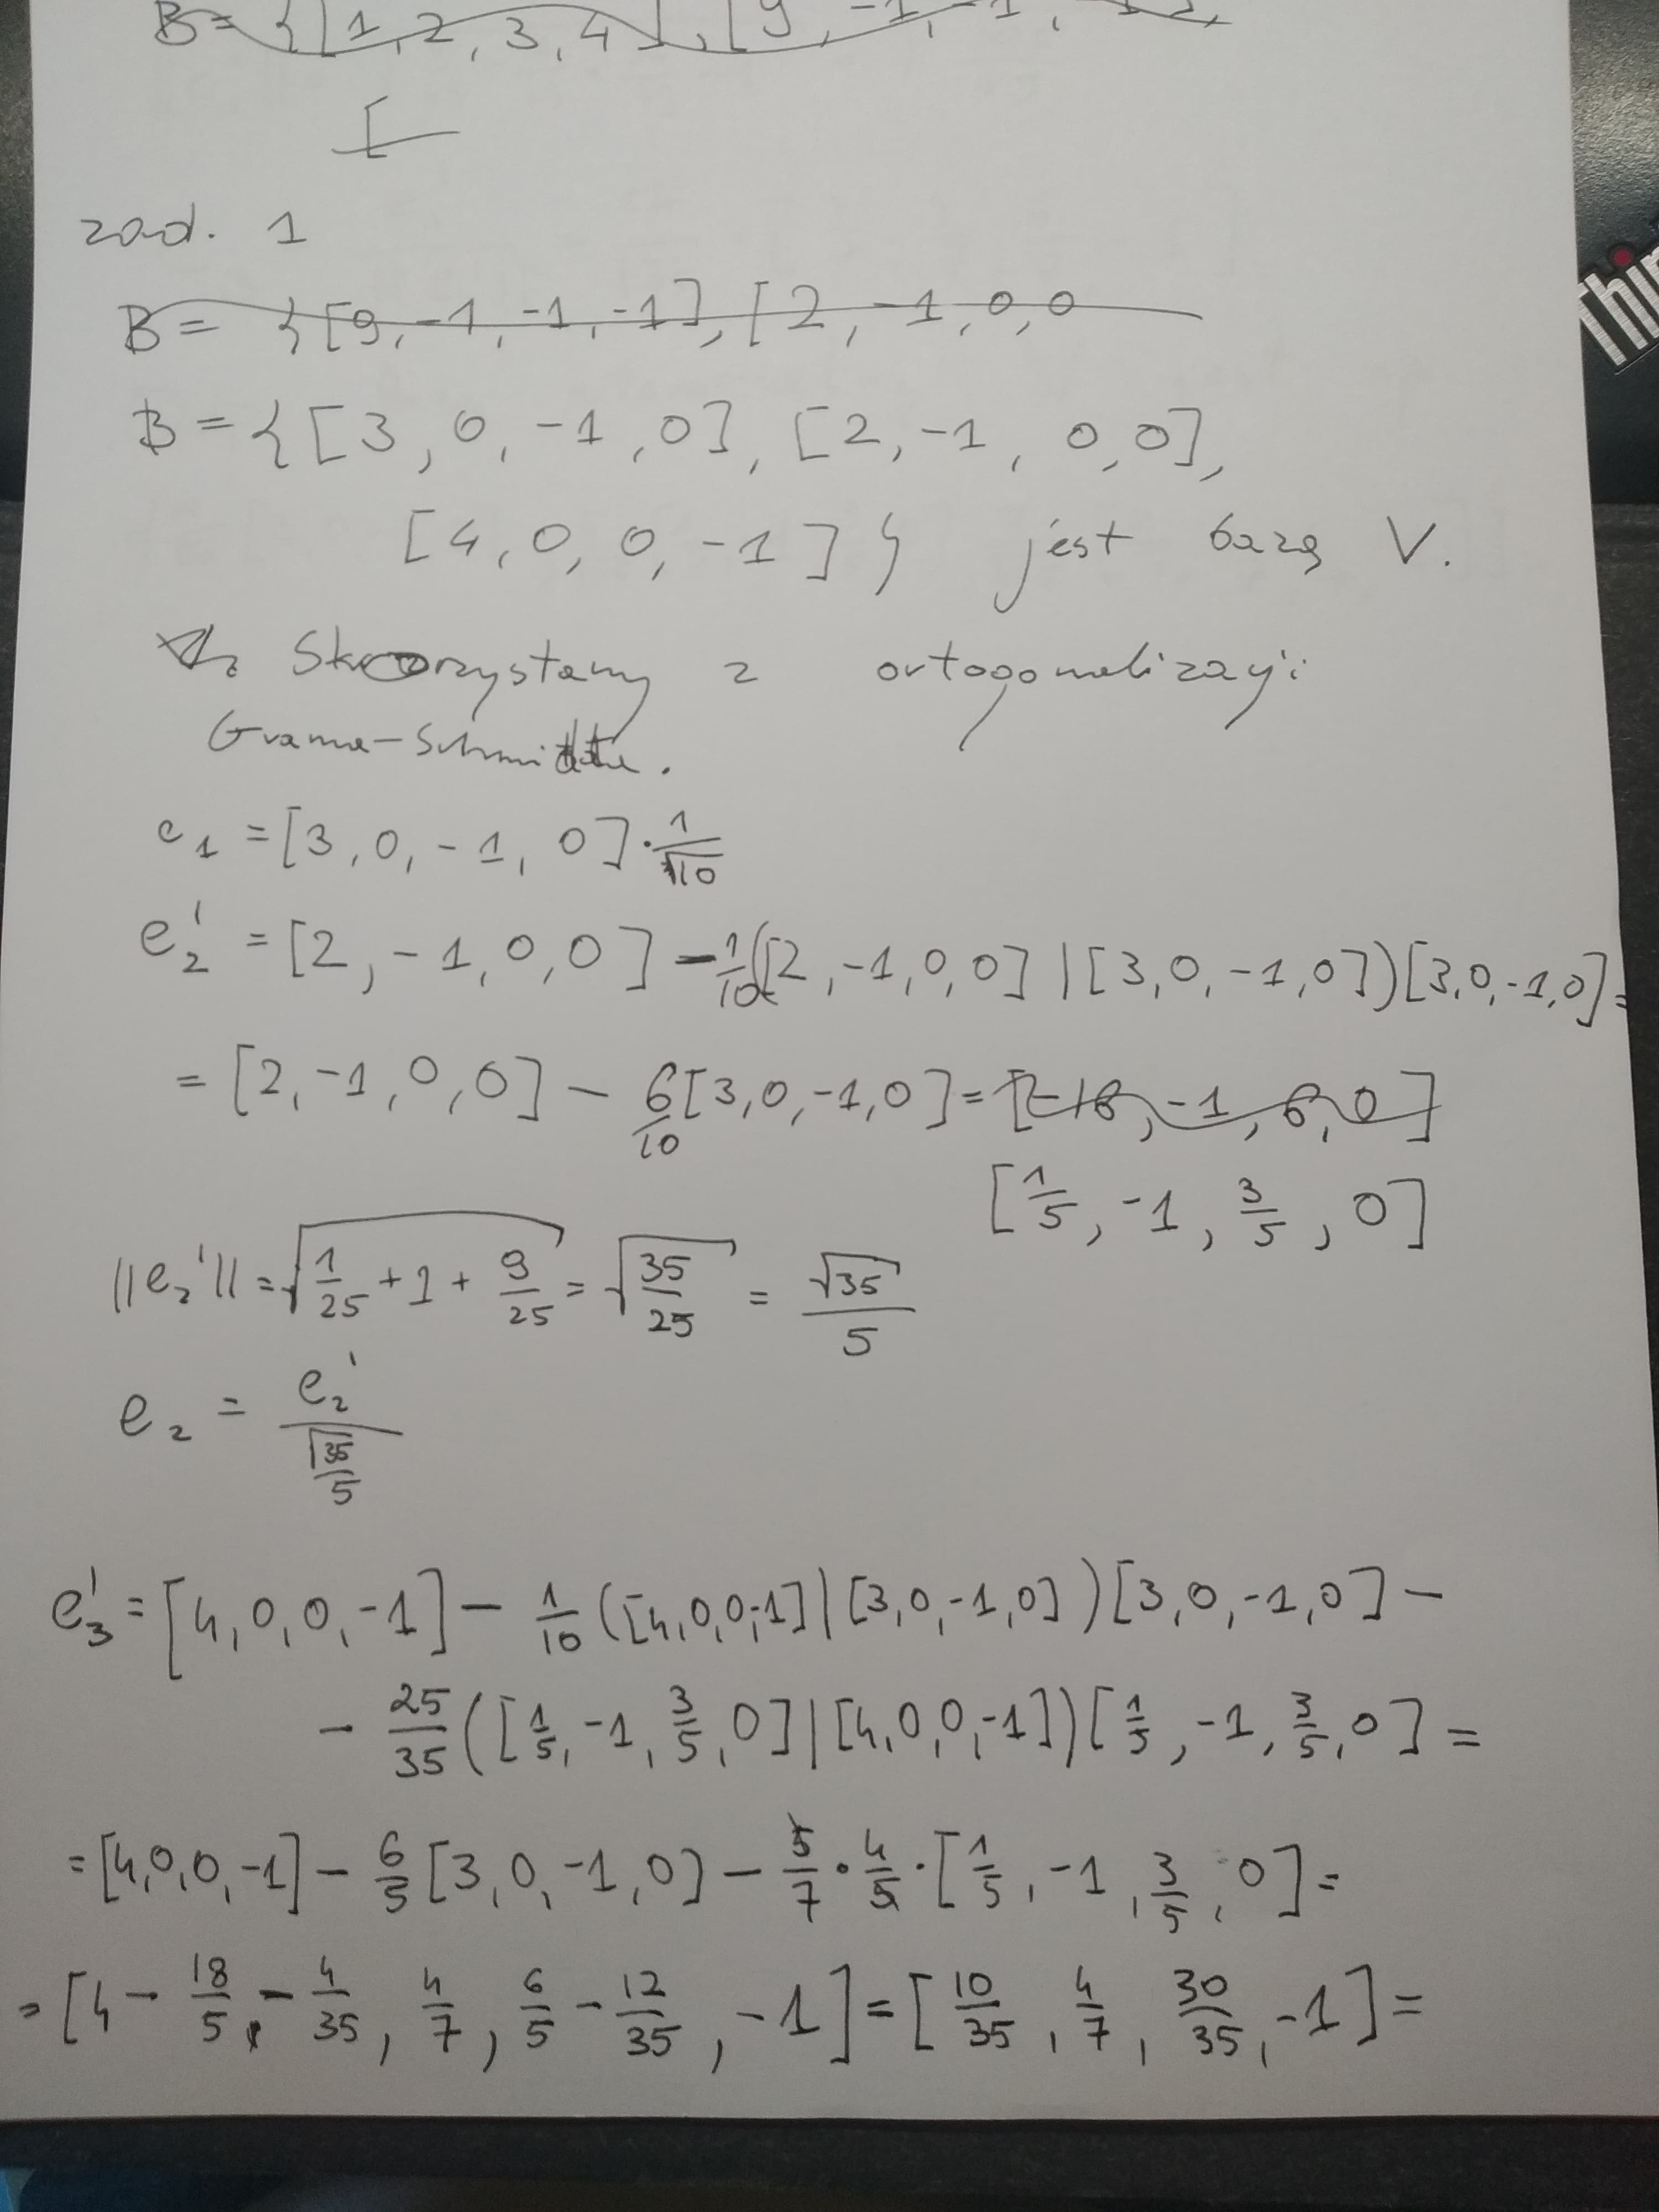 B = {[1, 2, 3, 4], [9, -1, -1,
[
zad. 1
B = {[9, -1, -1, -1], [2, -1, 0, 0
B = {[3, 0, -1, 0], [2, -1, 0, 0],
[4, 0, 0, -1]} jest bazą V.
Skorzystamy z ortogonalizacji
Grama-Schmidta.
e₁ = [3, 0, -1, 0] · 1/√10
e₂' = [2, -1, 0, 0] - 1/10 ([2, -1, 0, 0] | [3, 0, -1, 0]) [3, 0, -1, 0] =
= [2, -1, 0, 0] - 6/10 [3, 0, -1, 0] = [-16, -1, 6, 0]
[1/5, -1, 3/5, 0]
||e₂'|| = √(1/25 + 1 + 9/25) = √(35/25) = √35/5
e₂ = e₂'/(√35/5)
e₃' = [4, 0, 0, -1] - 1/10 ([4, 0, 0, -1] | [3, 0, -1, 0]) [3, 0, -1, 0] -
- 25/35 ([1/5, -1, 3/5, 0] | [4, 0, 0, -1]) [1/5, -1, 3/5, 0] =
= [4, 0, 0, -1] - 6/5 [3, 0, -1, 0] - 5/7 · 4/5 · [1/5, -1, 3/5, 0] =
= [4 - 18/5 - 4/35, 4/7, 6/5 - 12/35, -1] = [10/35, 4/7, 30/35, -1] =
Thin